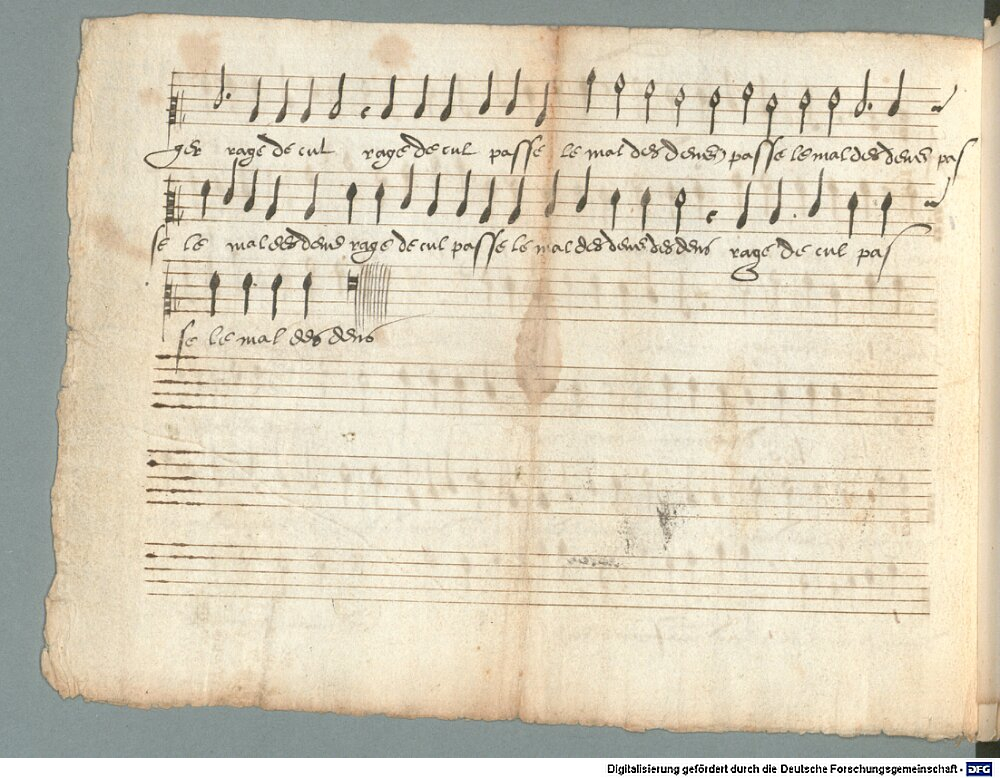 ger rage de cul rage de cul passe le mal des dens passe le mal des dens pas
se le mal des dens rage de cul passe le mal des dens des dens rage de cul pas
se le mal des dens
Digitalisierung gefördert durch die Deutsche Forschungsgemeinschaft - DFG